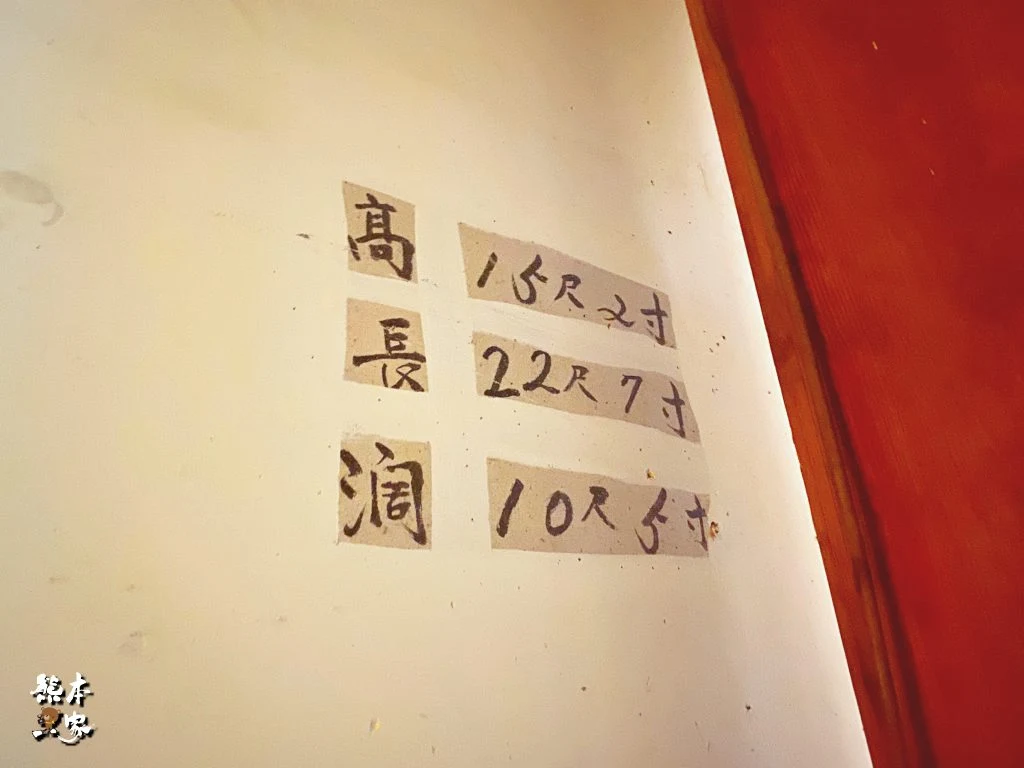 高 15尺2寸
長 22尺7寸
濶 10尺5寸
熊本
家